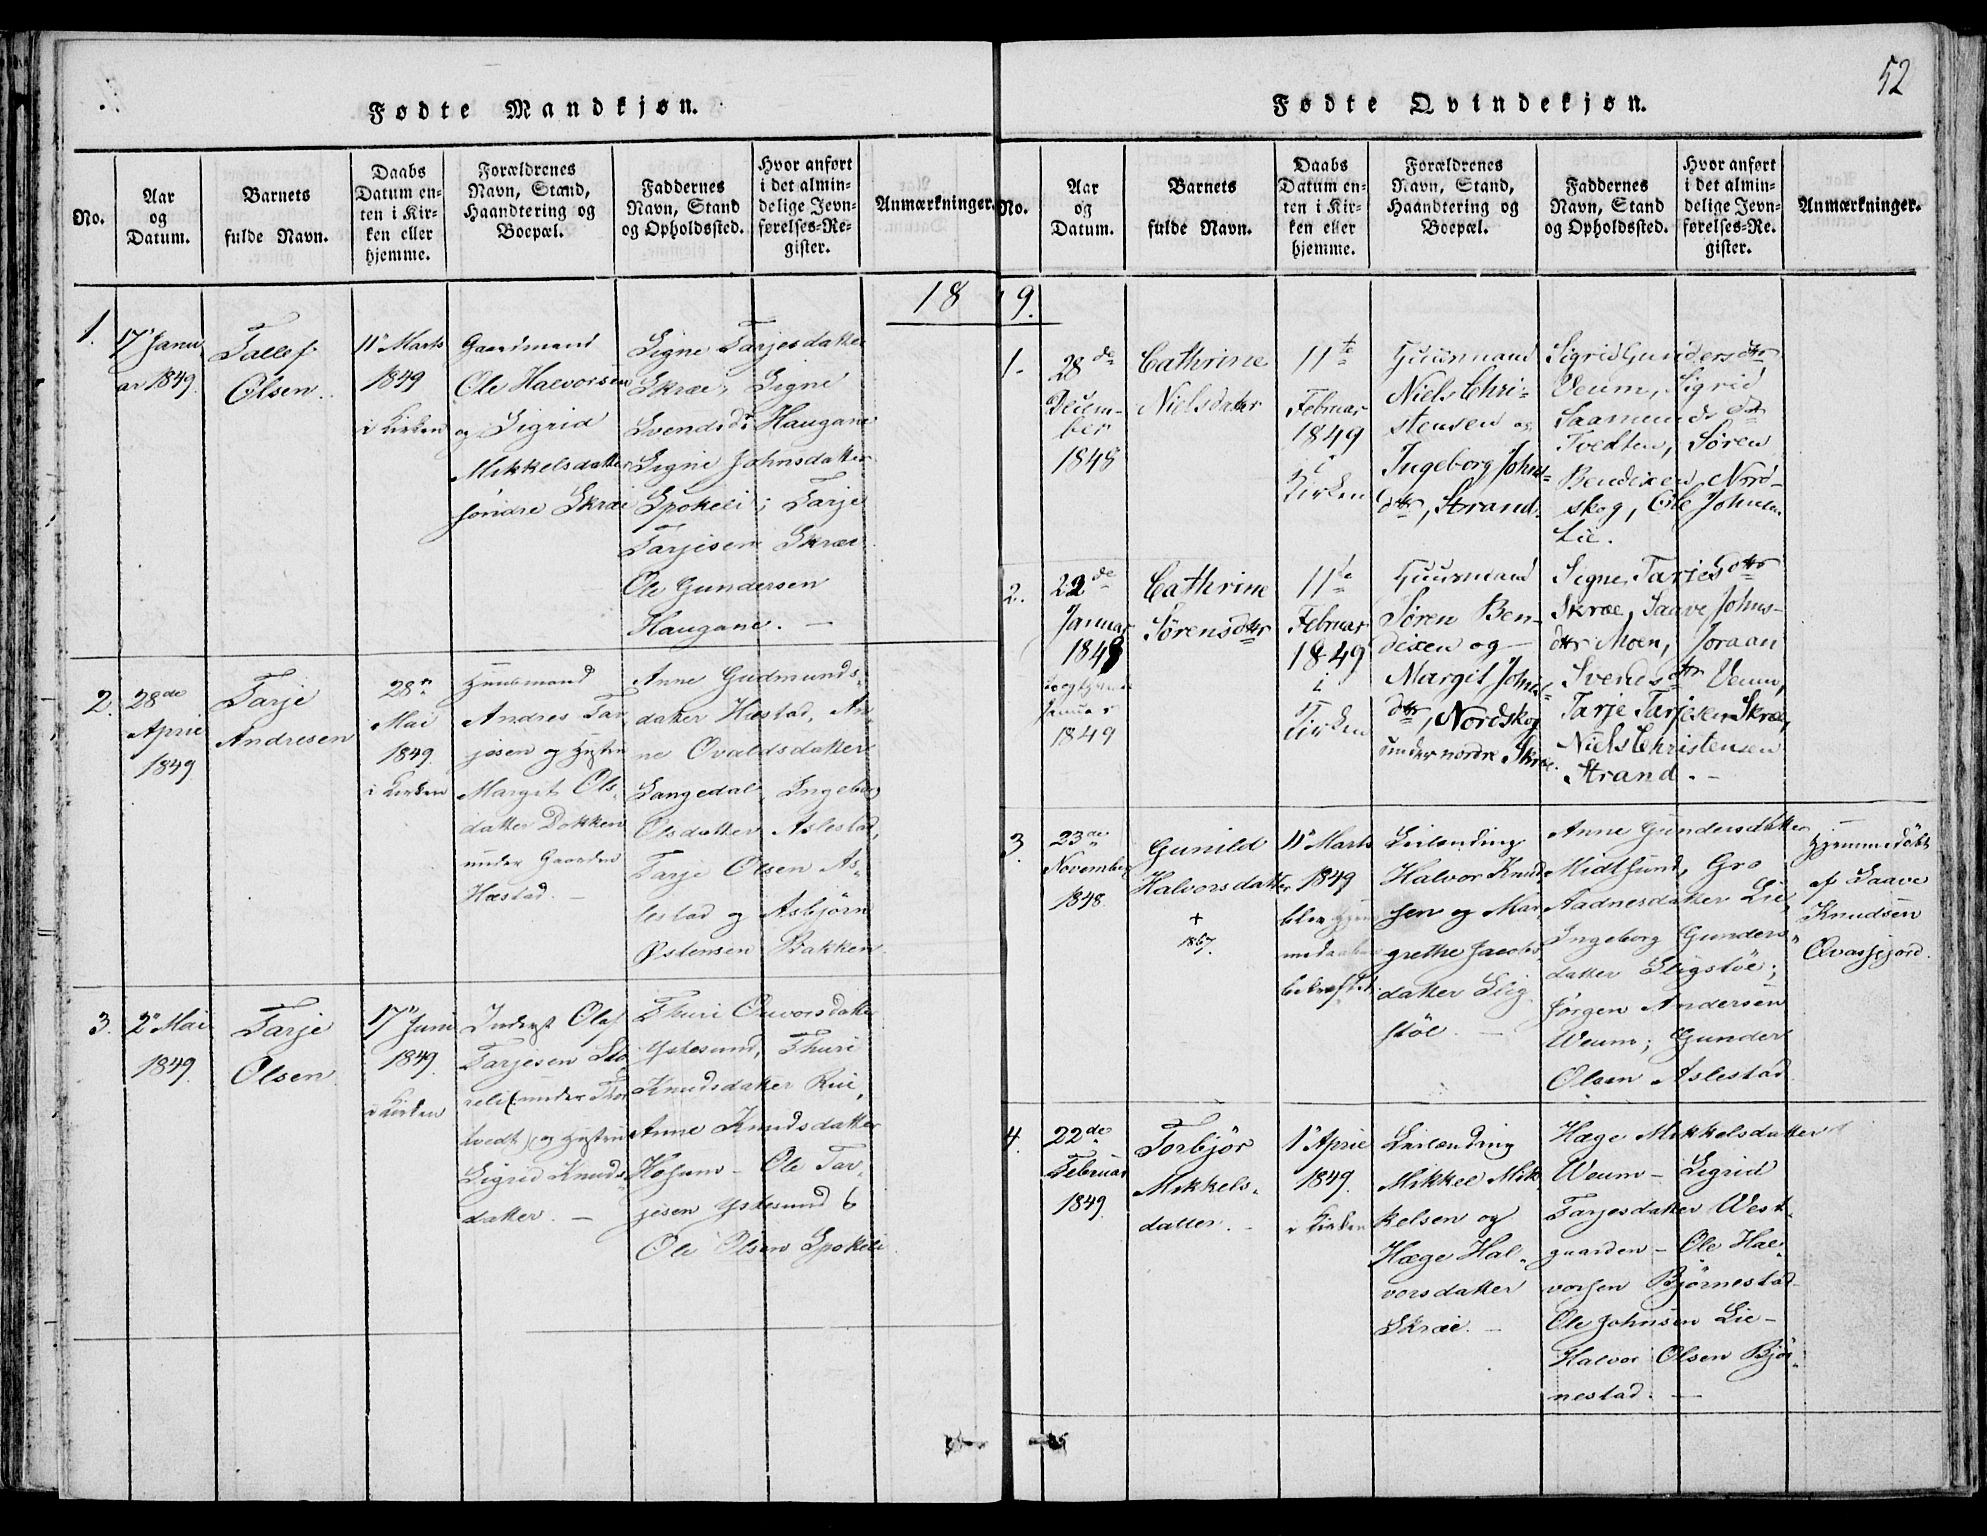 52
Fødte Mandkjøn.
No.
Aar
og
Datum.
Barnets
fulde Navn.
Daabs
Datum en-
ten i Kir-
ken eller
hjemme.
Forældrenes
Navn, Stand,
Haandtering og
Boepæl.
Faddernes
Navn, Stand
og Opholdssted.
Hvor anført
i det almin-
delige Jevn-
førelses-Re-
gister.
Anmærkninger.
18
1.
17 Janu
ar 1849.
Tallef
Olsen.
11 Marts
1849
i Kirken
Gaardmand
Ole Halvorsen
og Sigrid
Mikkelsdatter
søndre Skræe
Signe Tarjesdatter
Skræe, Signe
Svendsdr Haugane
Signe Johnsdatter
Spokeli; Tarje
Tarjesen Skræe
Ole Gundersen
Haugane. —
2.
28de
April
1849
Tarje
Andresen
28
Mai
1849.
i Kirken
Huusmand
Andres Tar
jesen og Hustru
Margit Ols-
datter Dokken
under Gaarden
Hæstad. —
Anne Gudmunds-
datter Hæstad, An-
ne Ovaldsdatter
Langedal, Ingeborg
Olsdatter Aslestad,
Tarje Olsen As-
lestad og Asbjørn
Østensen Bakken.
3.
2 Mai
1849.
Tarje
Olsen.
17 Juni
1849.
i Kirken
Inderst Olaf
Tarjesen Sto
reli (under
tvedt) og Hustru
Sigrid Knuds-
datter. —
Thuri
Ystesund, Thuri
Knudsdatter
Anne Knudsdatter
Ole Tar-
jesen Ystesund
Ole Olsen Spokeli.
Fødte Qvindekjøn.
No.
Aar
og
Datum.
Barnets
fulde Navn.
Daabs
Datum en-
ten i Kir-
ken eller
hjemme.
Forældrenes
Navn, Stand,
Haandtering og
Boepæl.
Faddernes
Navn, Stand
og Opholdssted.
Hvor anført
i det almin-
delige Jevn-
førelses-Re-
gister.
Anmærkninger.
49.
1.
28de
Decem-
ber
1848
Cathrine
Nielsdatter
11te
Februar
1849
i
Kirken
Huusmand
Niels Chri-
stensen og
Ingeborg Johns-
dtr, Strand.
Sigrid Gundersdtr
Veum, Sigrid
Saamundsdtr
Tvedten, Søren
Bendixen Nord-
skog, Ole Johnsen
Lie.
2.
22de
Januar
1849
Januar
1849
Cathrine
Sørensdtr
11te
Februar
1849
i
Kirken
Huusmand
Søren Ben-
dixen og
Margit Johns-
dtr, Nordskog
under nordre Skræe.
Signe Tarjesdtr
Skræe, Saave Johns-
dtr Moen, Joraan
Svendsdtr Veum,
Tarje Tarjesen Skræe,
Niels Christensen
Strand. —
3.
23de
November
1848.
Gunild
Halvorsdatter
+
1867.
11 Marts
1849
blev Hjem
medaaben
bekræftet
Leilænding
Halvor Knud-
sen og Mar-
grethe Jacobs-
datter Slig
støe. —
Anne Gundersdatter
Midtsund, Gro
Aadnesdatter Lie,
Ingeborg Gunders-
datter Sligstøe;
Jørgen Andersen
Weum; Gunder
Olsen Aslestad.
Hjemmedøbt
af Saave
Knudsen
4.
22de
Februar
1849.
Torbjør
Mikkels-
datter. —
1 April
1849.
i Kirken
Leilænding
Mikkel Mik-
kelsen og
Hæge Hal-
vorsdatter
Skræe. —
Hæge Mikkelsdatter
Weum — Sigrid
Tarjesdatter West-
gaarden — Ole Hal-
vorsen Bjørnestad
Ole Johnsen Lie —
Halvor Olsen Bjør-
nestad. —